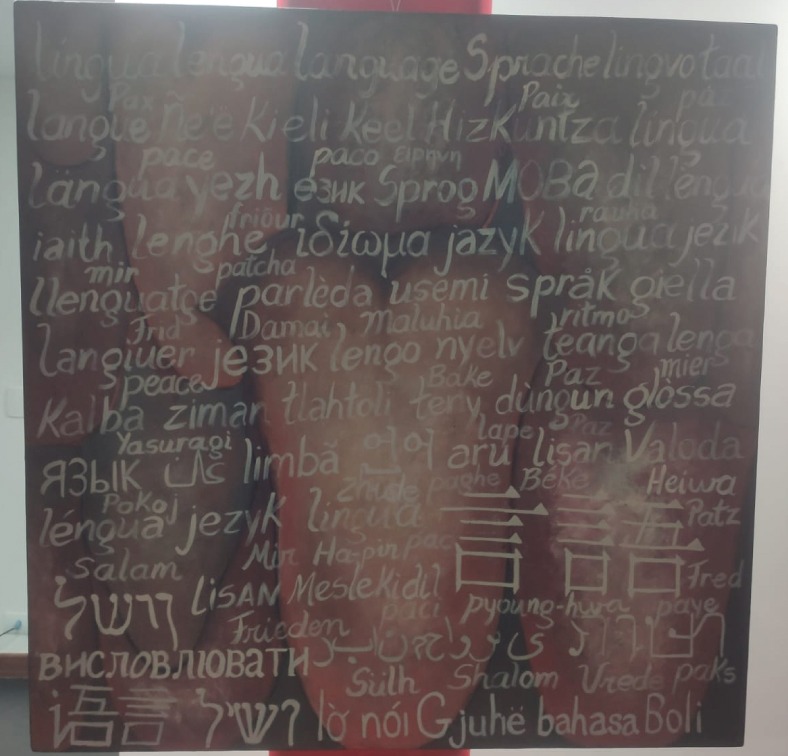 língua lengua language Sprache lingvo taal
Pax Paix
langue Ñe'ẽ Kieli keel Hizkuntza lingua
pace paco Ειρηνη
längua yezh език Sprog МОВа dil
friður rauha
iaith lenghe ιδίωμα jazyk lingua jezik
mir patcha
llenguatge parlèda usemi språk giella
Frid Damai Maluhia ritmo
langiuer језик lengo nyelv teanga lenga
peace Bake Paz mier
Kalba ziman tlahtoli teny dùngun glòssa
Yasuragi lape Paz
язык limbă 언어 aru lisan Valoda
paghe Béke Heiwa
léngua jezyk lingua
Pokoj Patz
Salam Mir Ha-pin Fred
LiSAN Meslekidil
Frieden paci pyoung-hwa paye
висловлювати
Sulh Shalom Vrede paks
語言 lờ nói Gjuhë bahasa Boli